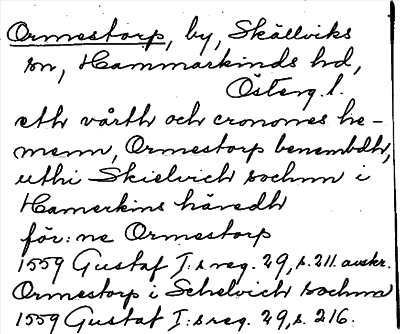 Ormestorp, by, Skällviks
sn, Hammarkinds hd,
Österg. l.
eth vårth och cronones he-
menn, Ormestorp benembdh,
uthi Skielvich sochnn i
Hamerkins häredh
för: ne Ormestorp
1559 Gustaf I:s reg. 29, s. 211. avskr.
Ormestorp i Schelvich sochnn
1559 Gustaf I:s reg. 29, s. 216.